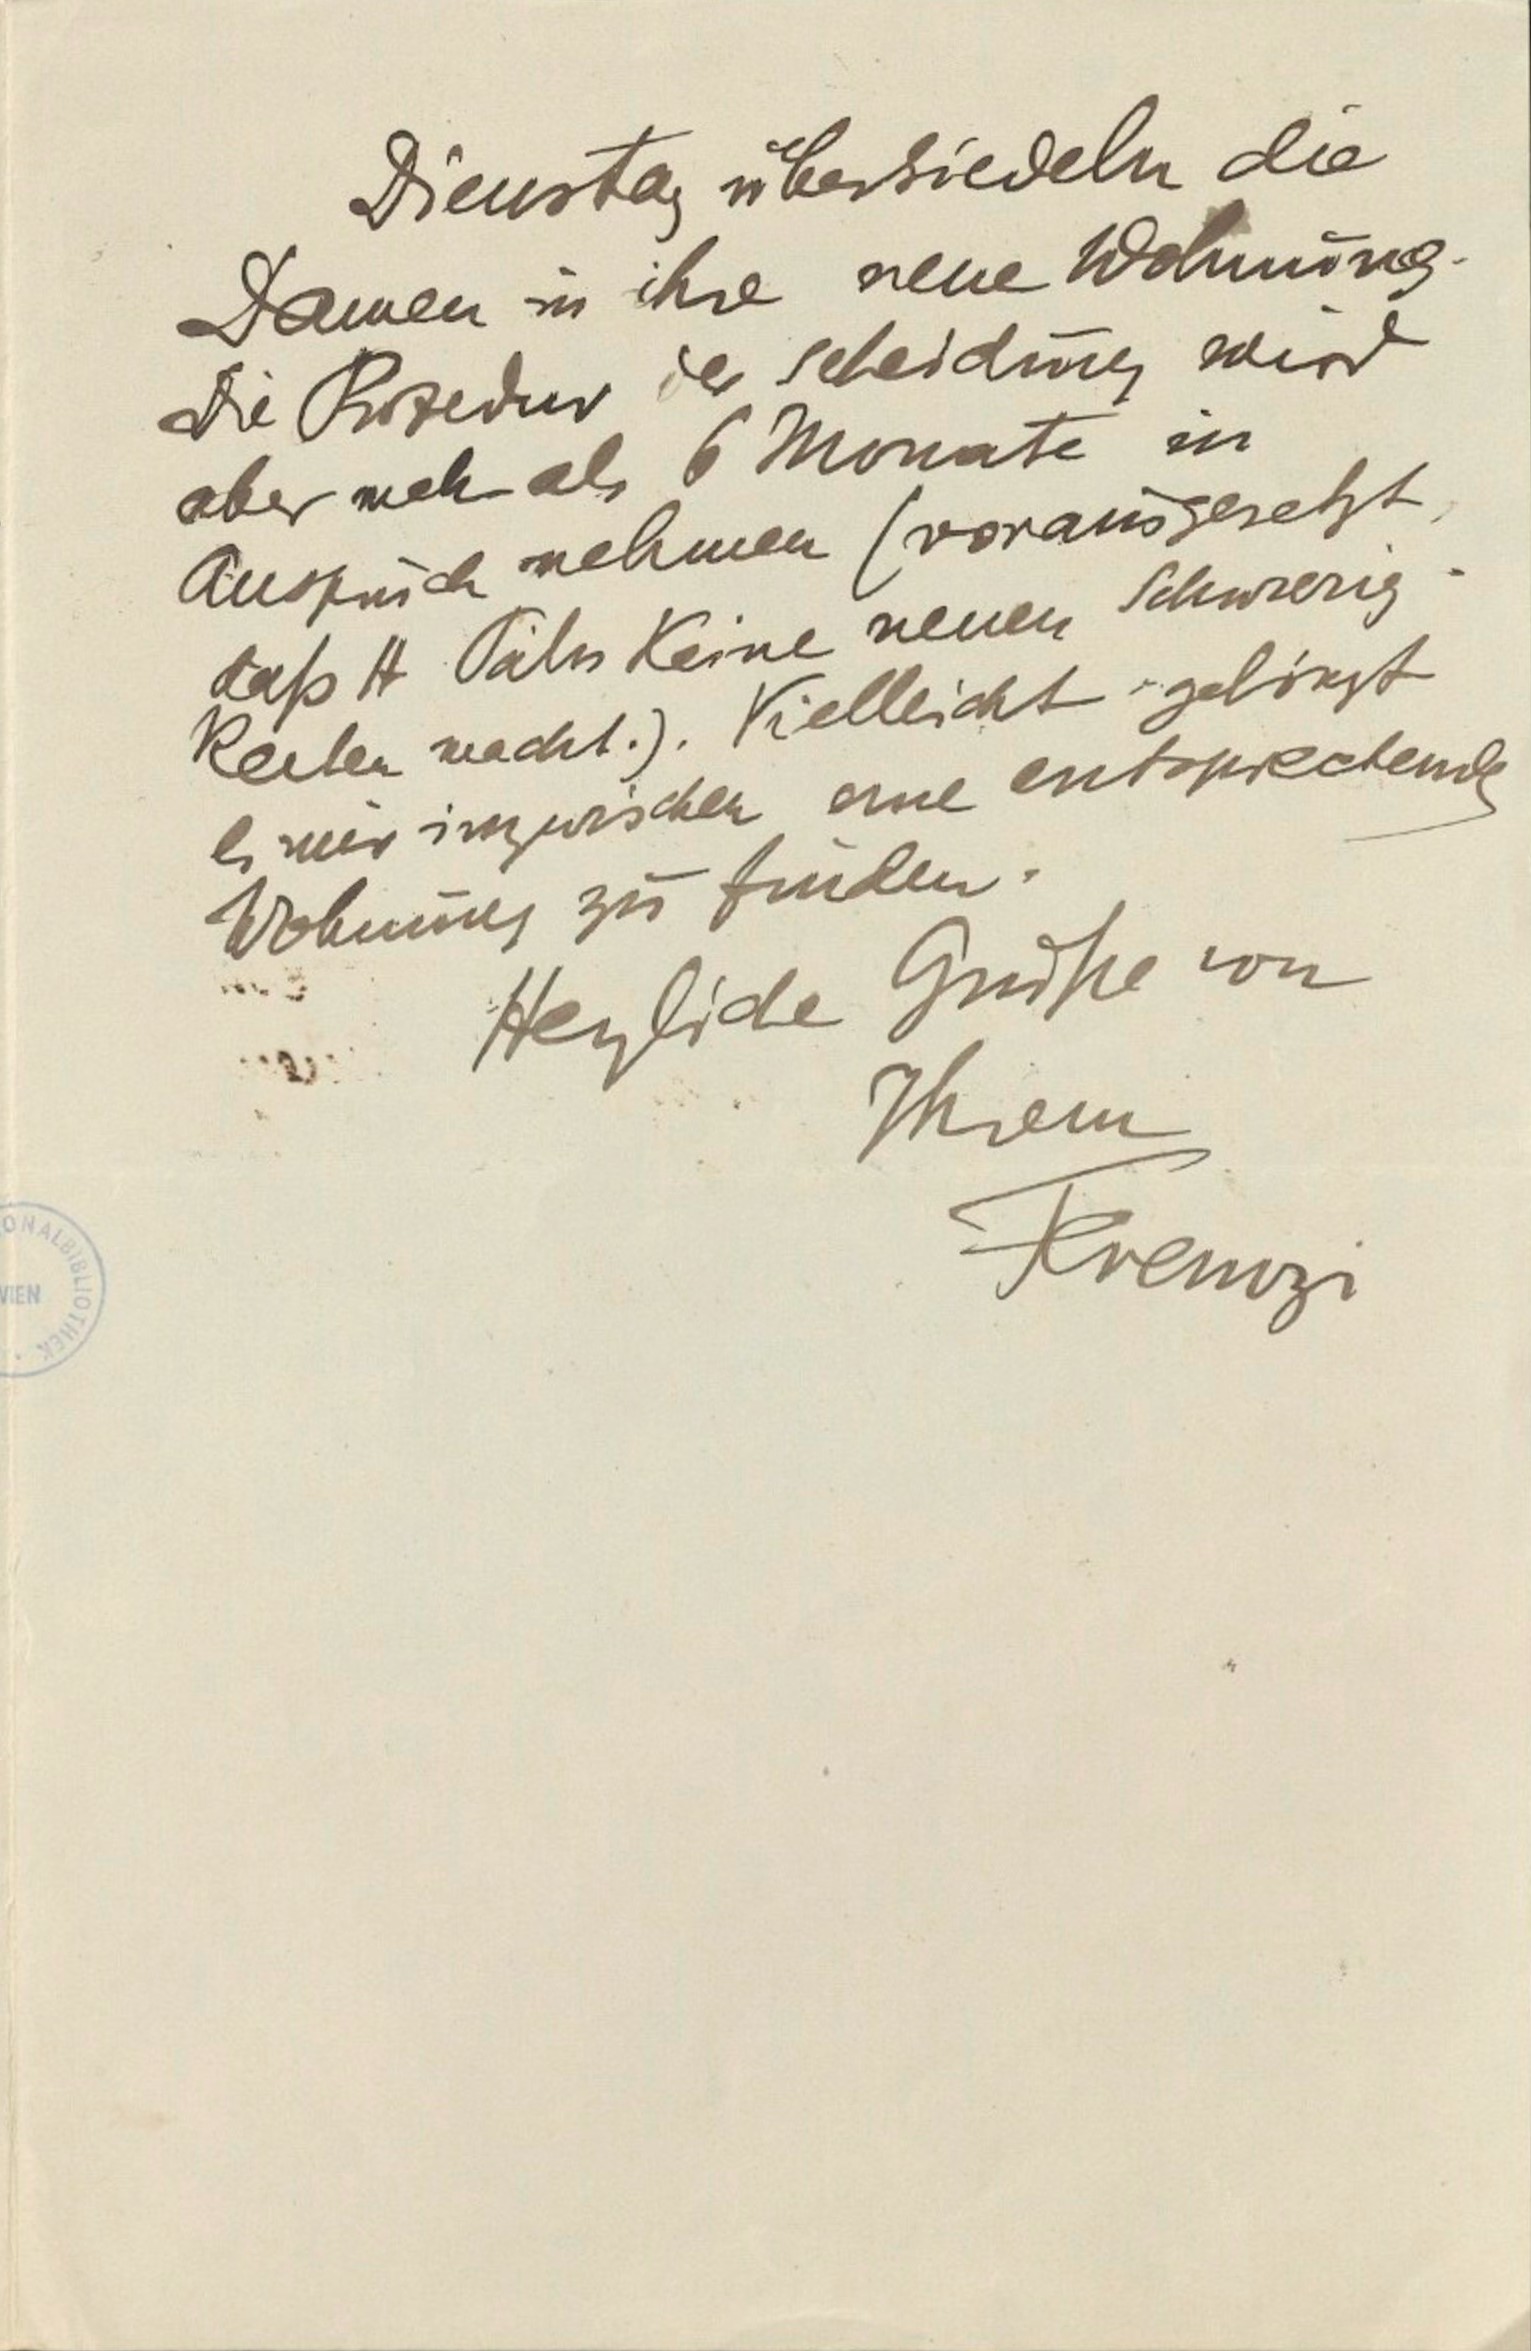 Dienstag übersiedeln die
Damen in ihre neue Wohnung.
Die Prozedur der Scheidung wird
aber mehr als 6 Monate in
Anspruch nehmen (vorausgesetzt,
daß H Pálos keine neuen Schwierig-
keiten macht.). Vielleicht gelingt
es mir inzwischen eine entsprechende
Wohnung zu finden.
Herzliche Grüße von
Ihrem
Ferenczi
ONALBIBLIOTHEK
WIEN